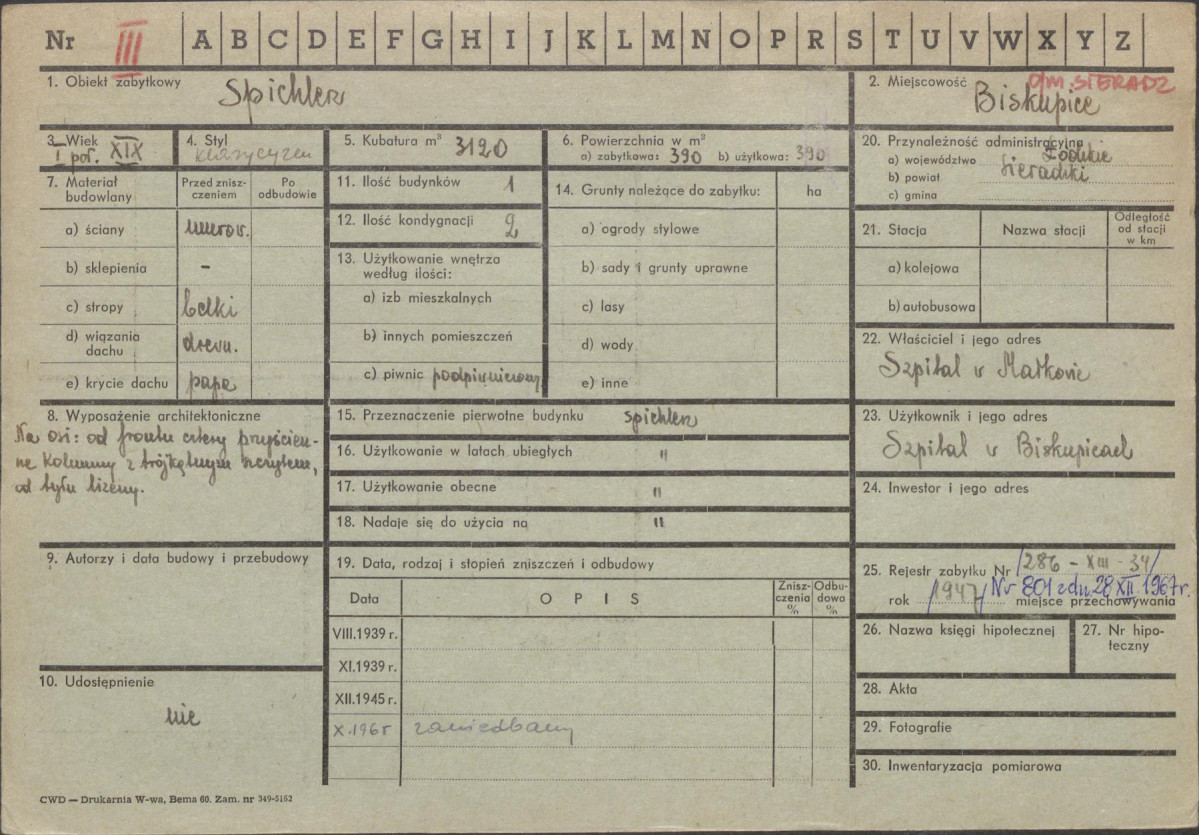 Nr III A B C D E F G H I J K L M N O P R S T U V W X Y Z
1. Obiekt zabytkowy
Spichlerz
2. Miejscowość
o/m. SIERADZ
Biskupice
3. Wiek
I poł. XIX
4. Styl
klasycyzm
5. Kubatura m³ 3120
6. Powierzchnia w m²
a) zabytkowa: 390 b) użytkowa: 390
20. Przynależność administracyjna
a) województwo Łódzkie
b) powiat Sieradzki
c) gmina
7. Materiał budowlany
Przed zniszczeniem
Po odbudowie
a) ściany murow.
b) sklepienia -
c) stropy belki
d) wiązania dachu drewn.
e) krycie dachu papa
11. Ilość budynków 1
12. Ilość kondygnacji 2
13. Użytkowanie wnętrza
według ilości:
a) izb mieszkalnych
b) innych pomieszczeń
c) piwnic podpiwniczony
14. Grunty należące do zabytku: ha
a) ogrody stylowe
b) sady i grunty uprawne
c) lasy
d) wody
e) inne
21. Stacja
Nazwa stacji
Odległość
od stacji
w km
a) kolejowa
b) autobusowa
22. Właściciel i jego adres
Szpital w
8. Wyposażenie architektoniczne
Na osi: od frontu cztery przyścien-
ne kolumny z trójkątnym szczytem,
od tyłu lizeny.
15. Przeznaczenie pierwotne budynku spichlerz
16. Użytkowanie w latach ubiegłych "
17. Użytkowanie obecne "
18. Nadaje się do użycia na "
23. Użytkownik i jego adres
Szpital w Biskupicach
24. Inwestor i jego adres
9. Autorzy i data budowy i przebudowy
19. Data, rodzaj i stopień zniszczeń i odbudowy
Data
O P I S
Znisz-
czenia
%
Odbu-
dowa
%
VIII.1939 r.
XI.1939 r.
XII.1945 r.
X.1965 zaniedbany
25. Rejestr zabytku Nr /286 - XIII - 34/
rok /1947/ Nr 801 z dn 28 XII. 1967 r.
miejsce przechowywania
26. Nazwa księgi hipotecznej
27. Nr hipo-
teczny
10. Udostępnienie
nie
28. Akta
29. Fotografie
30. Inwentaryzacja pomiarowa
CWD — Drukarnia W-wa, Bema 60. Zam. nr 349-5162